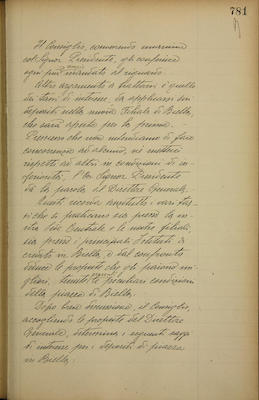 781
Il Consiglio, concorde
col Signor Presidente, gli conferisce
ogni più mandato al riguardo.
Altro argomento a trattarsi è quello
dei tassi di interesse da applicarsi sui
depositi nella nuova Filiale di Biella,
che sarà aperta per la prima.
Premesso che non intendiamo di fare
concorrenza ad alcuno, nè metterci
rispetto ad altri in condizioni di in-
feriorità, l'On. Signor Presidente
dà la parola al Direttore Generale.
Questi ricorda anzitutto i vari tas-
si che si praticano sia presso la no-
stra Sede Centrale e le nostre filiali,
sia presso i principali Istituti di
credito in Biella, e dal confronto
deduce le proposte che gli paiono mi-
gliori, tenute le peculiari condizioni
della piazza di Biella.
Dopo breve discussione, il Consiglio,
accogliendo le proposte del Direttore
Generale, determina i seguenti saggi
di interesse per i depositi di piazza
in Biella: